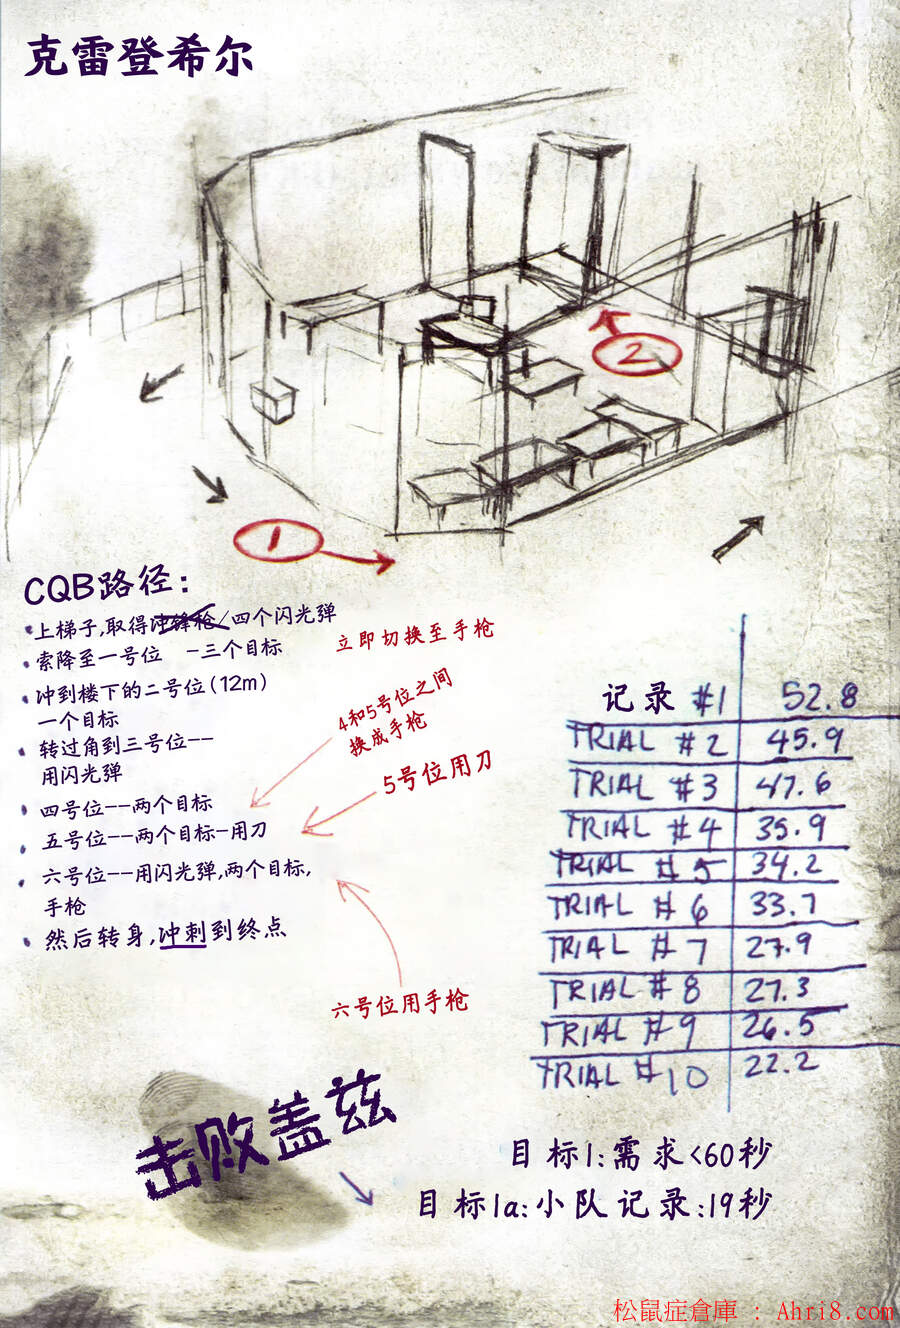 克雷登希尔
2
1
CQB路径:
上梯子,取得冲锋枪/四个闪光弹
立即切换至手枪
索降至一号位 -三个目标
冲到楼下的二号位(12m)
一个目标
4和5号位之间
换成手枪
转过角到三号位--
用闪光弹
5号位用刀
四号位--两个目标
五号位--两个目标-用刀
六号位--用闪光弹,两个目标,
手枪
然后转身,冲刺到终点
六号位用手枪
记录 #1 52.8
TRIAL #2 45.9
TRIAL #3 47.6
TRIAL #4 35.9
TRIAL #5 34.2
TRIAL #6 33.7
TRIAL #7 27.9
TRIAL #8 27.3
TRIAL #9 26.5
TRIAL #10 22.2
击败盖兹
目标1:需求<60秒
目标1a:小队记录:19秒
松鼠症倉庫 : Ahri8.com